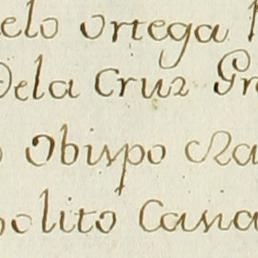 elo Ortega
Dela Cruz Gr
Obispo Ra
polito Casa